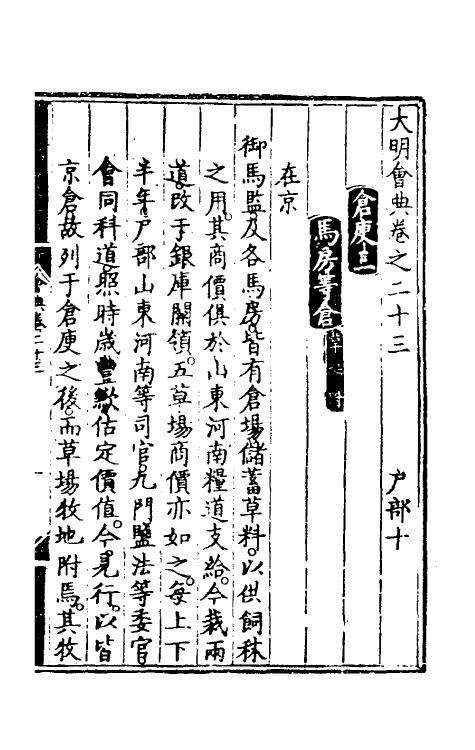 大明會典卷之二十三　户部十
倉庾三
馬房等倉
在京
御馬監及各馬房皆有倉場儲蓄草料以供飼秣
之用其商價俱於山東河南糧道支給今裁兩
道改于銀庫關領五草場商價亦如之每上下
半年户部山東河南等司官九門鹽法等委官
會同科道照時歲豐歉估定價值今見行以皆
京倉故列于倉庾之後而草場牧地附焉其牧